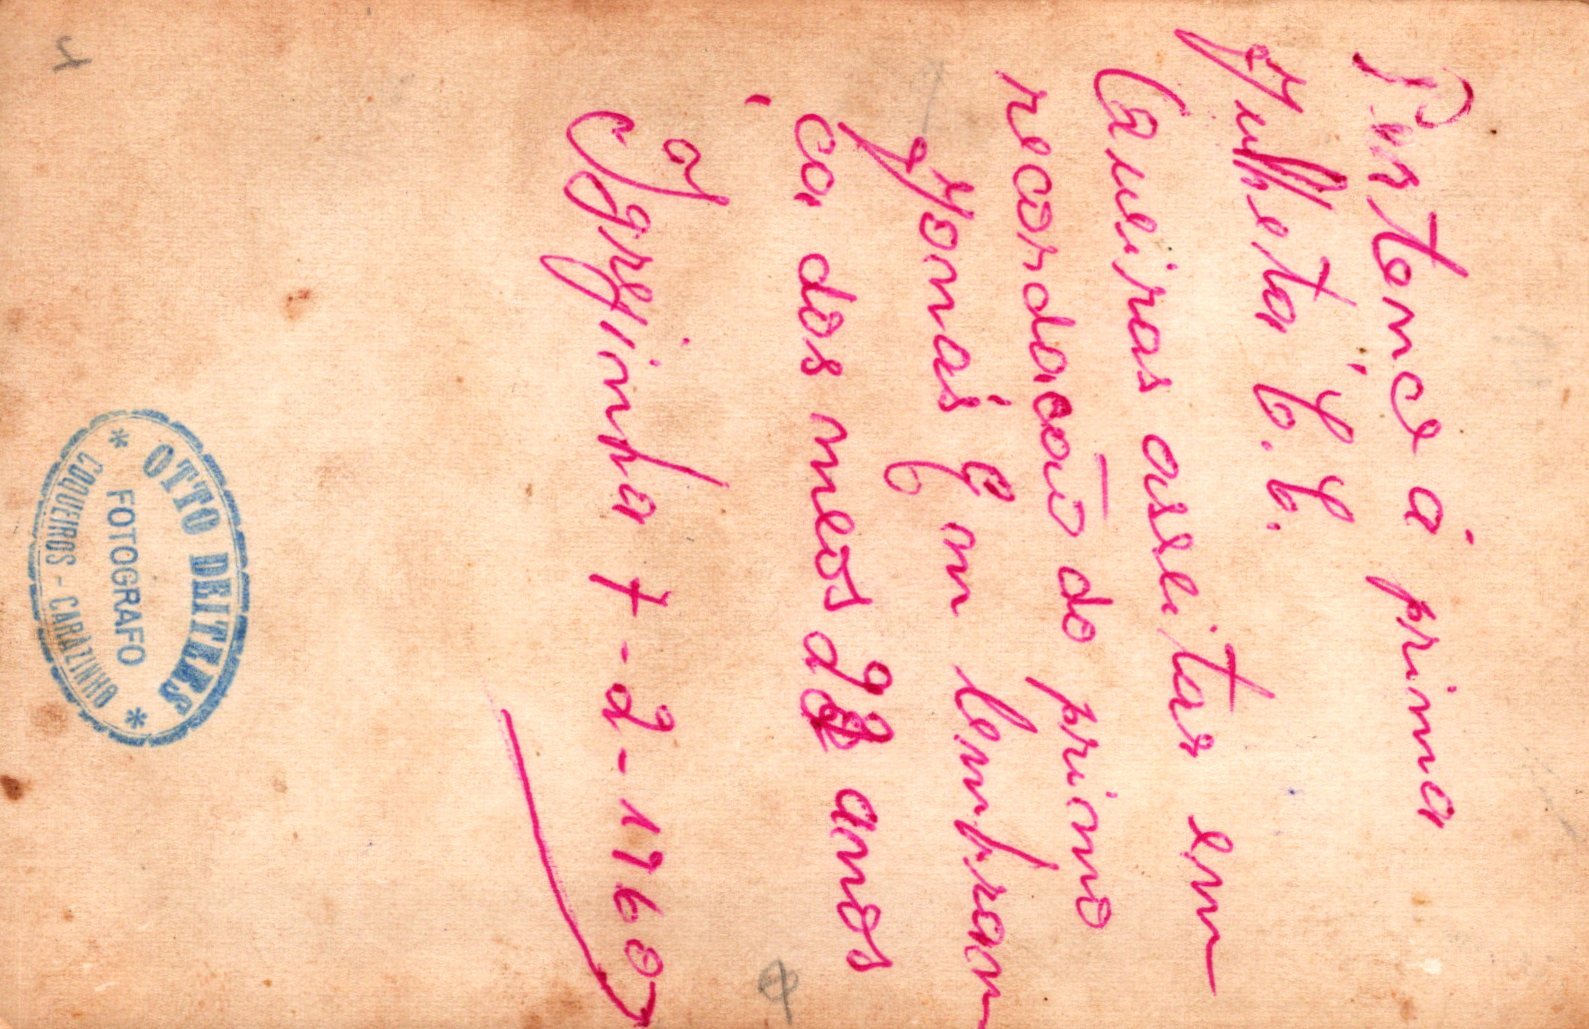 Pertence á prima
Julheta C. C.
queiras aseitar em
recordacão do primo
Jonas C. em lembran
ca dos meos 22 anos
Igrejinha 7-2-1960
OTTO DRITTES
FOTOGRAFO
COQUEIROS - CARAZINHO